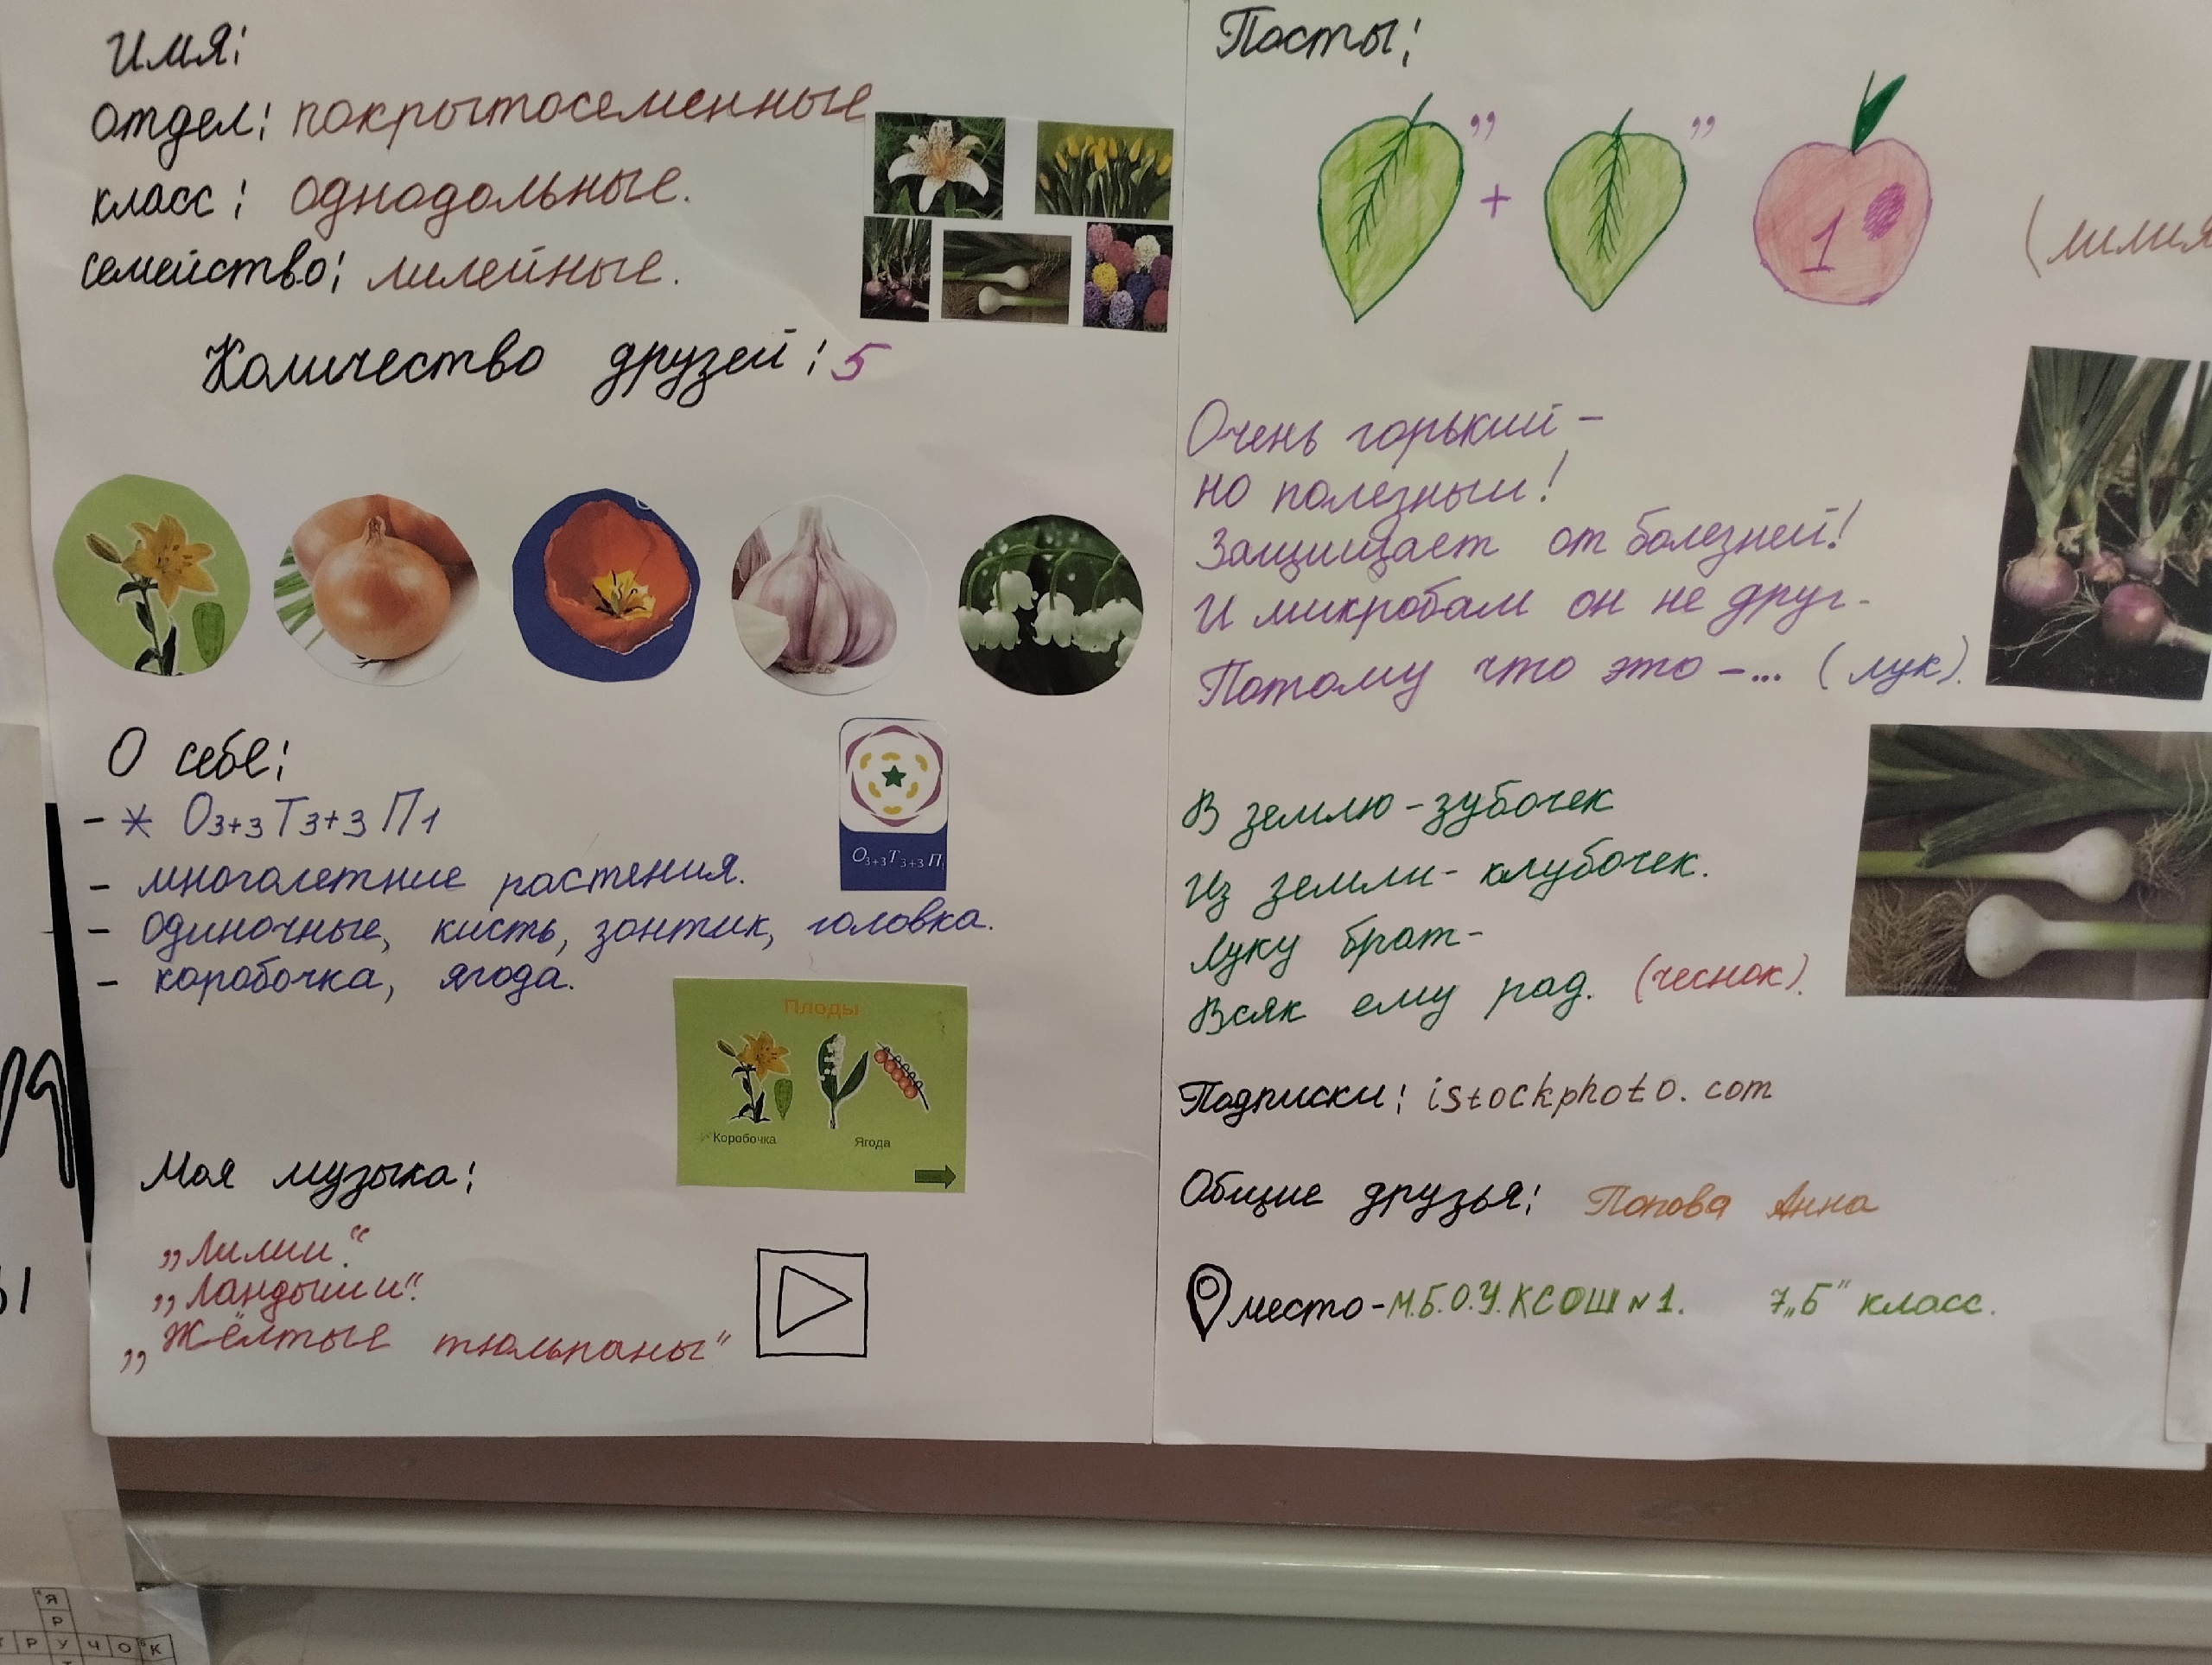 Имя:
отдел: покрытосеменные
класс: однодольные.
семейство: лилейные.
Количество друзей: 5
О себе:
- * О3+3 Т3+3 П1
О3+3Т3+3П
- многолетние растения.
- одиночные, кисть, зонтик, головка.
- коробочка, ягода.
Плоды
Коробочка Ягода
Моя музыка:
„Лилии“.
„Ландыши“.
„Жёлтые тюльпаны“
Посты:
,, + ,, 1
(лилия
Очень горький -
но полезный!
Защищает от болезней!
И микробам он не друг.
Потому что это - ... (лук).
В землю - зубочек
Из земли - клубочек.
Луку брат -
Всяк ему рад. (чеснок).
Подписки: istockphoto.com
Общие друзья: Попова Анна
место - М.Б.О.У.КСОШ№1. 7„Б“ класс.
Я
Р
РУЧОК